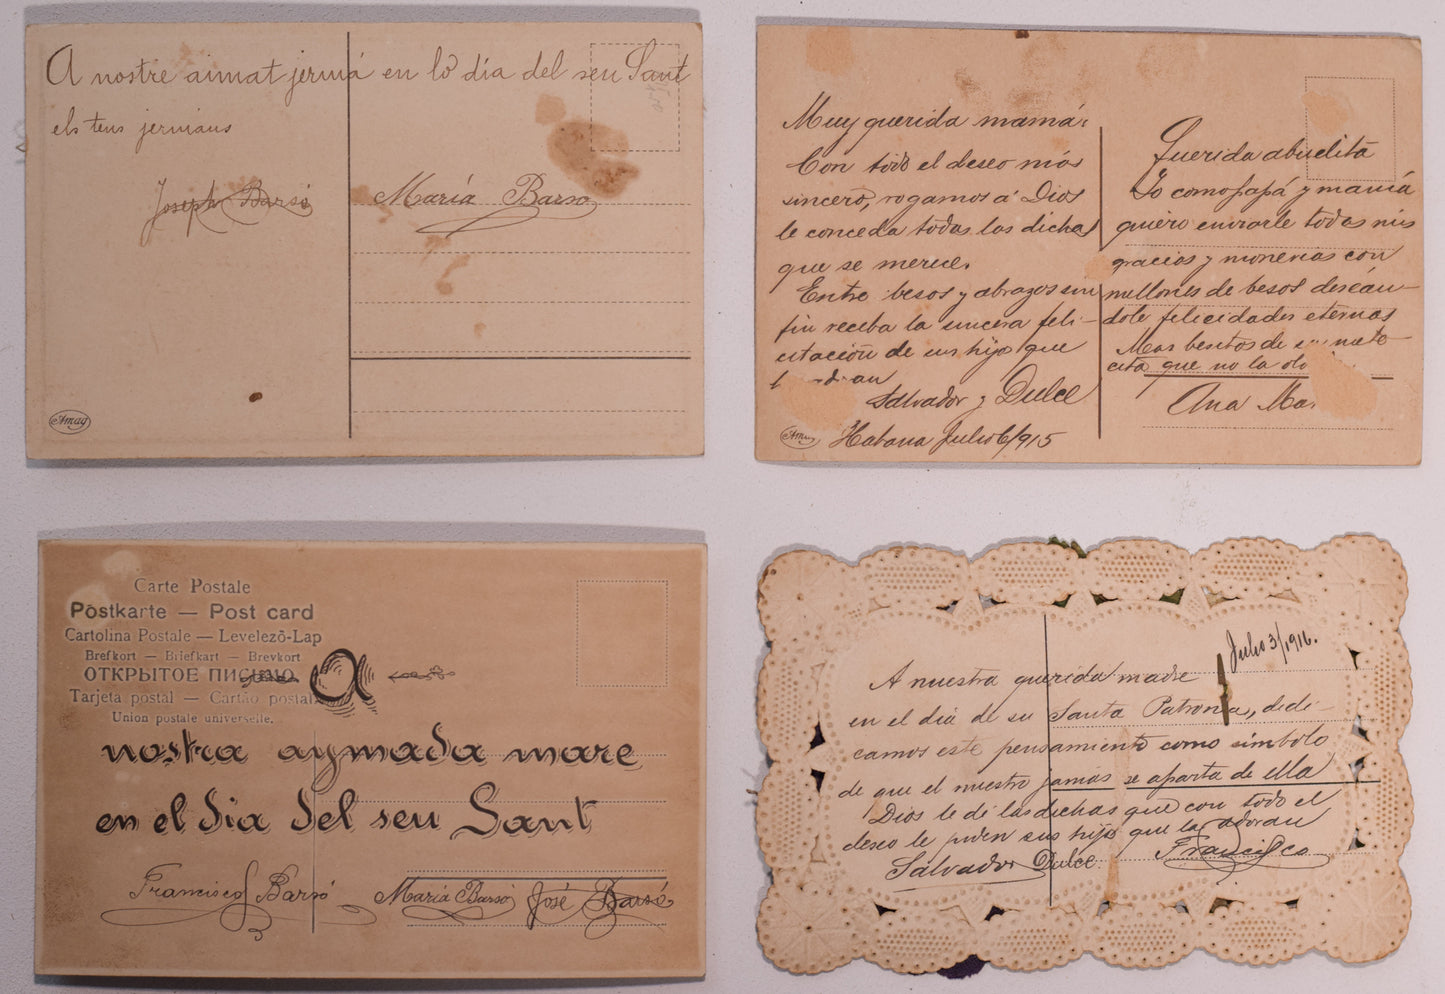 A nostre aimat jermá en lo día del seu Sant
els teus jermans
Joseph Barsó
María Barsó
Amag
Muy querida mamá:
Con todo el deseo más
sincero, rogamos á Dios
le conceda todas las dichas
que se merece.
Entre besos y abrazos sin
fin receba la sincera feli-
citación de sus hijos que
Salvador y Dulce
Habana Julio 6/915
Querida abuelita
Yo como papá y mamá
quiero enviarle todas mis
gracias y monerias con
millones de besos deseán-
dole felicidades eternas
Mas besitos de su nieto-
cita que no la
Ana
Amag
Carte Postale
Postkarte — Post card
Cartolina Postale — Levelezō-Lap
Brefkort — Briefkart — Brevkort
ОТКРЫТОЕ ПИСЬМО
Tarjeta postal — Cartão postal
Union postale universelle.
a
nostra aymada mare
en el dia del seu Sant
Francisco Barsó
María Barsó José Barsó
Julio 3/1916.
A nuestra querida madre
en el día de su Santa Patrona, dedi-
camos este pensamiento como símbolo
de que el nuestro jamás se aparta de ella
Dios le dé las dichas que con todo el
deseo le piden sus hijos que la adoran
Salvador Dulce Francisco